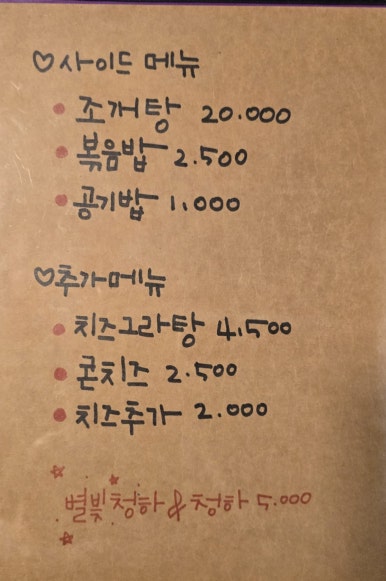 ♡사이드 메뉴
• 조개탕 20.000
• 볶음밥 2.500
• 공기밥 1.000
♡추가메뉴
• 치즈그라탕 4.500
• 콘치즈 2.500
• 치즈추가 2.000
별빛청하 & 청하 5.000